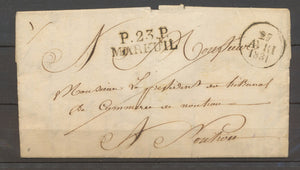 P.23.P.
MAREUIL
27
AVRIL
1831
A Monsieur
Monsieur le président du tribunal
de Commerce de
A